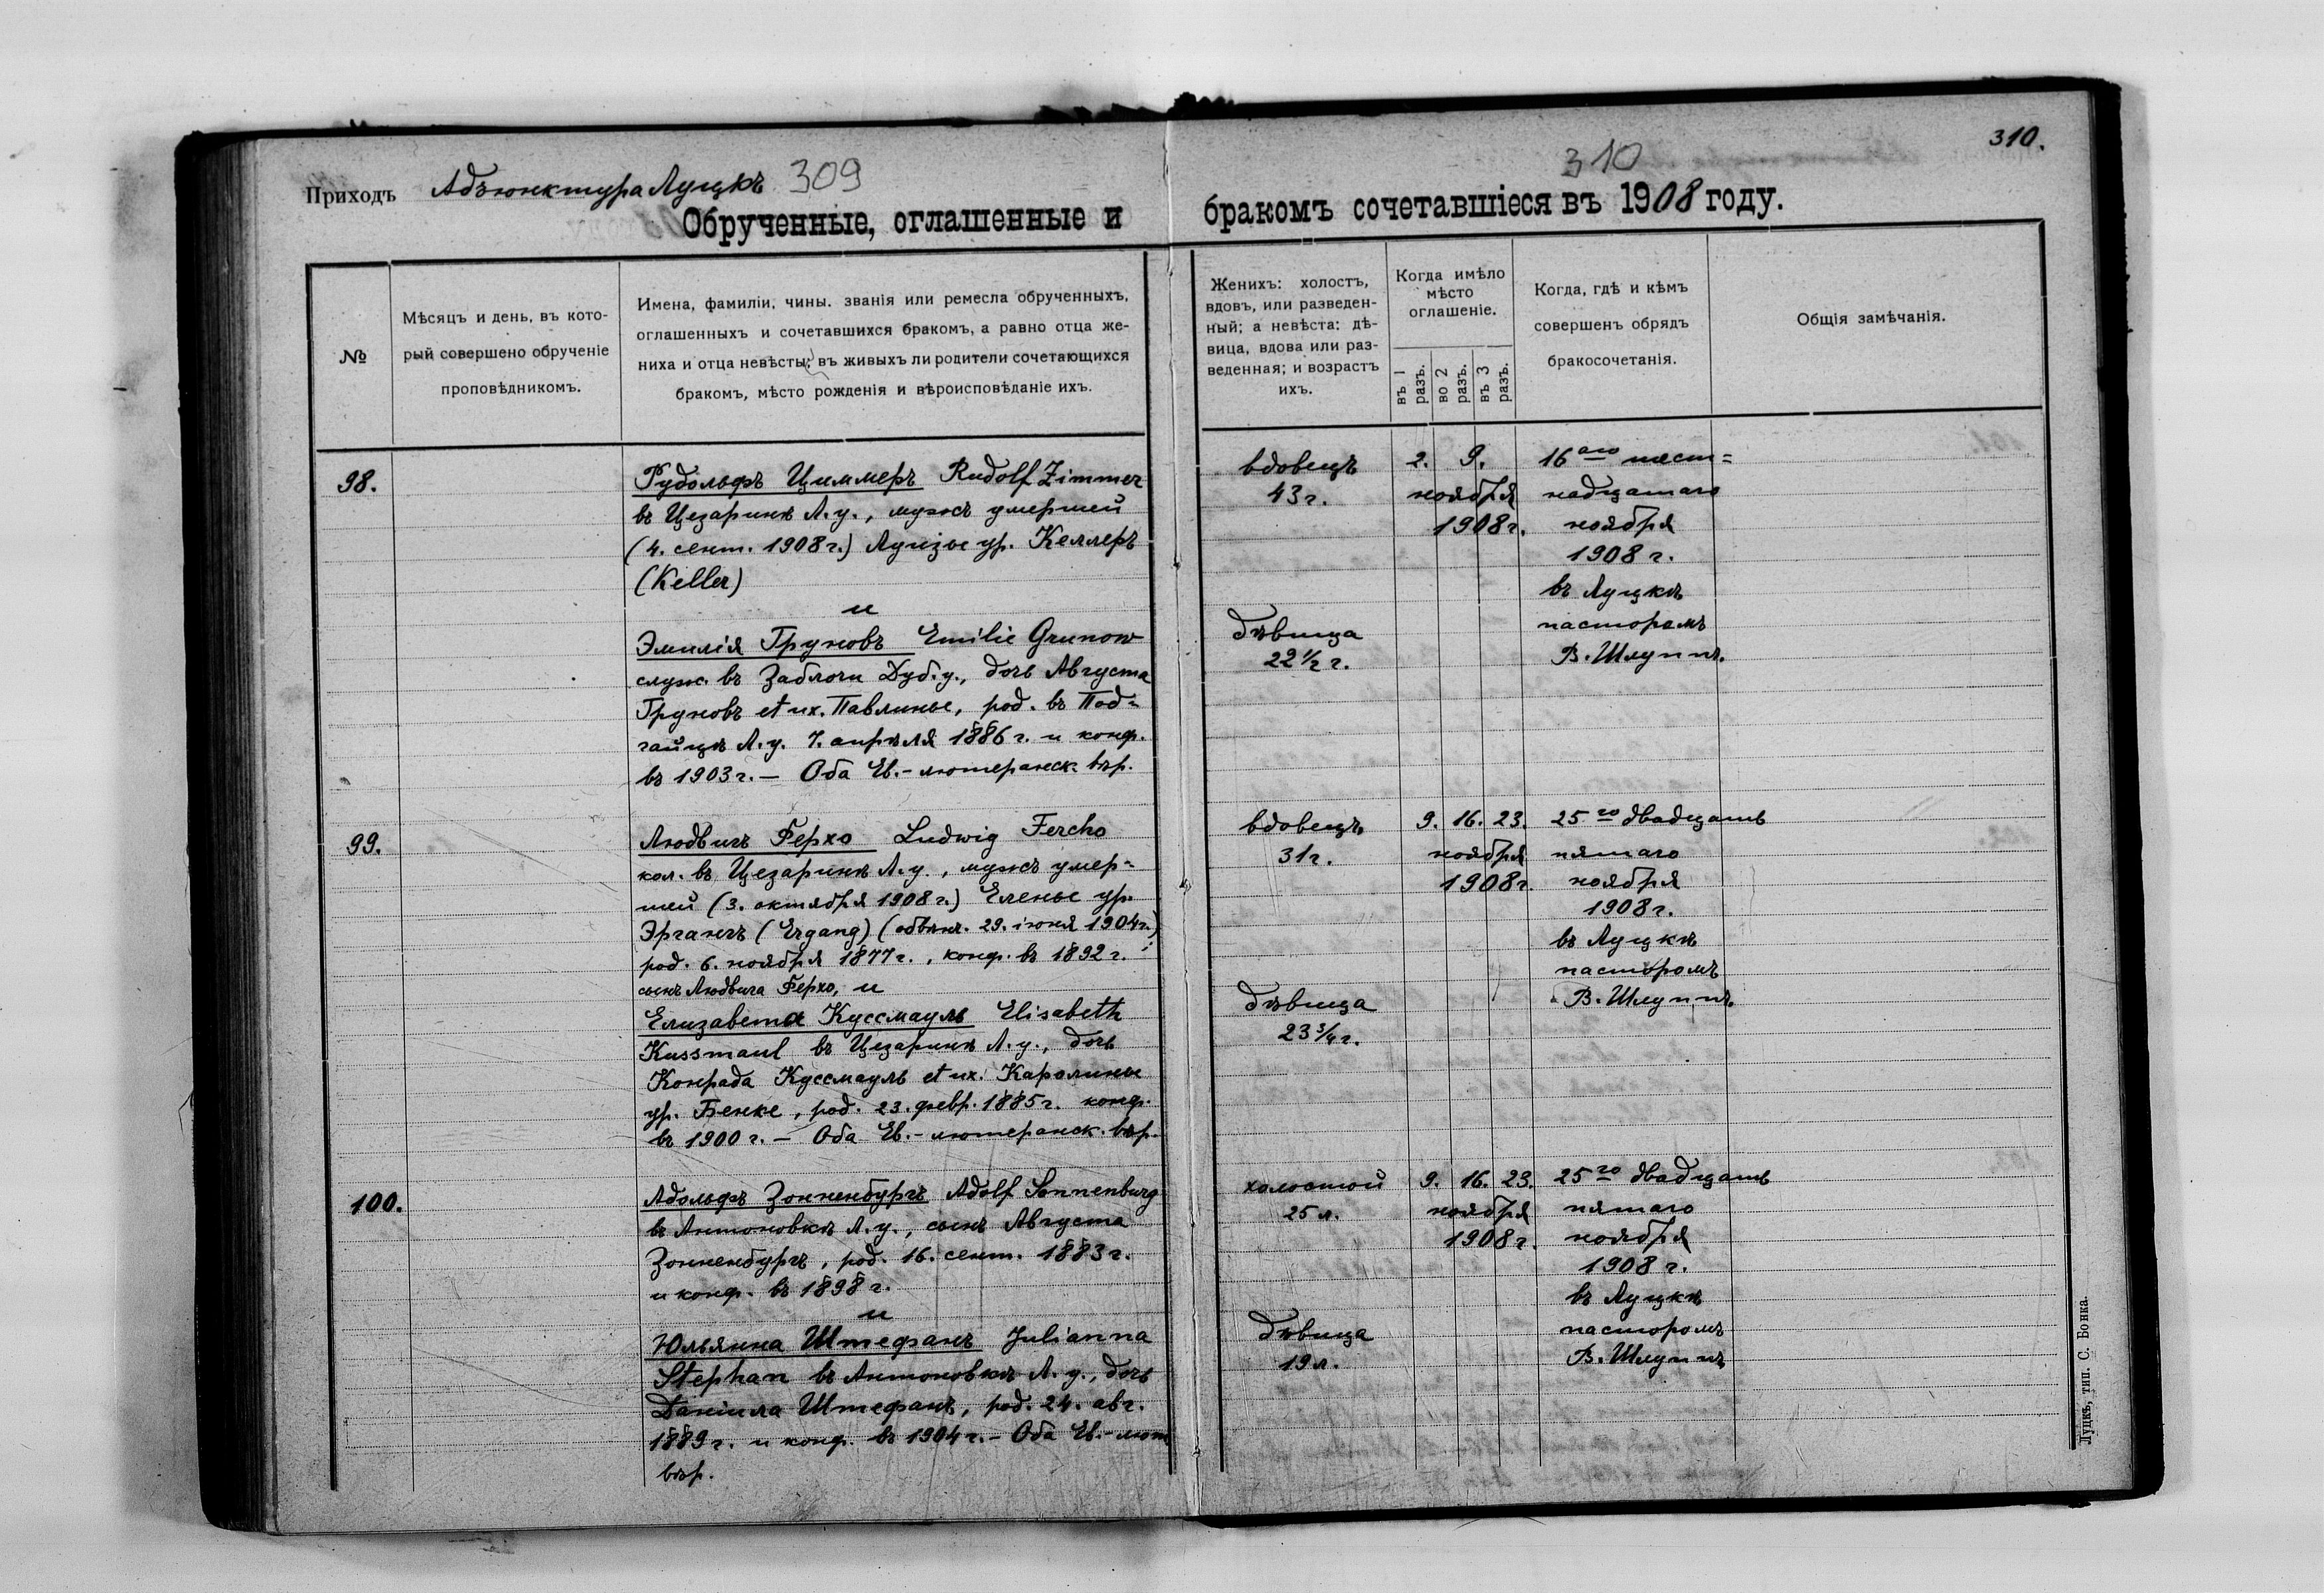 Приходъ Адъюнктура Луцкъ 309
Обрученные, оглашенные и
№
Мѣсяцъ и день, въ кото-
рый совершено обрученіе
проповѣдникомъ.
Имена, фамиліи, чины. званія или ремесла обрученныхъ,
оглашенныхъ и сочетавшихся бракомъ, а равно отца же-
ниха и отца невѣсты; въ живыхъ ли родители сочетающихся
бракомъ, мѣсто рожденія и вѣроисповѣданіе ихъ.
98.
Рудольфъ Циммеръ Rudolf Zimmer
въ Цезаринѣ Л. у., мужъ умершей
(4. сент. 1908 г.) Луизы ур. Келлеръ
(Keller)
и
Эмилія Груновъ Emilie Grunow
служ. въ Заблочи Дуб. у., дочь Августа
Груновъ et ux. Павлины, род. въ Под-
гайцѣ Л. у. 7. апрѣля 1886 г. и конф.
въ 1903 г. — Оба Ев.-лютеранск. вѣр.
99.
Людвигъ Ферхо Ludwig Fercho
кол. въ Цезаринѣ Л. у., мужъ умер-
шей (3. октября 1908 г.) Елены ур.
Эргангъ (Ergang) (обвѣнч. 29. іюня 1904 г.)
род. 6. ноября 1877 г., конф. въ 1892 г.;
сынъ Людвига Ферхо, и
Елизавета Куссмауль Elisabeth
Kussmaul въ Цезаринѣ Л. у., дочь
Конрада Куссмауль et ux. Каролины
ур. Бенке, род. 23. февр. 1885 г. конф.
въ 1900 г. — Оба Ев.-лютеранск. вѣр.
100.
Адольфъ Зонненбургъ Adolf Sonnenburg
въ Антоновкѣ Л. у., сынъ Августа
Зонненбургъ, род. 16. сент. 1883 г.
и конф. въ 1898 г.
и
Юльянна Штефанъ Julianna
Stephan въ Антоновкѣ Л. у., дочь
Даніила Штефанъ, род. 24. авг.
1889 г. и конф. въ 1904 г. — Оба Ев.-лют
вѣр.
310
310.
бракомъ сочетавшіеся въ 1908 году.
Женихъ: холостъ,
вдовъ, или разведен-
ный; а невѣста: дѣ-
вица, вдова или раз-
веденная; и возрастъ
ихъ.
Когда имѣло
мѣсто
оглашеніе.
въ 1 разъ.
во 2 разъ.
въ 3 разъ.
Когда, гдѣ и кѣмъ
совершенъ обрядъ
бракосочетанія.
Общія замѣчанія.
вдовецъ
43 г.
дѣвица
22 1/2 г.
2. 9.
ноября
1908 г.
16аго шест=
надцатаго
ноября
1908 г.
въ Луцкѣ
пасторомъ
В. Шлуппъ.
вдовецъ
31 г.
дѣвица
23 3/4 г.
9. 16. 23.
ноября
1908 г.
25го двадцать
пятаго
ноября
1908 г.
въ Луцкѣ
пасторомъ
В. Шлуппъ.
холостой
25 л.
дѣвица
19 л.
9. 16. 23.
ноября
1908 г.
25го двадцать
пятаго
ноября
1908 г.
въ Луцкѣ
пасторомъ
В. Шлуппъ
Луцкъ, тип. С. Бонка.